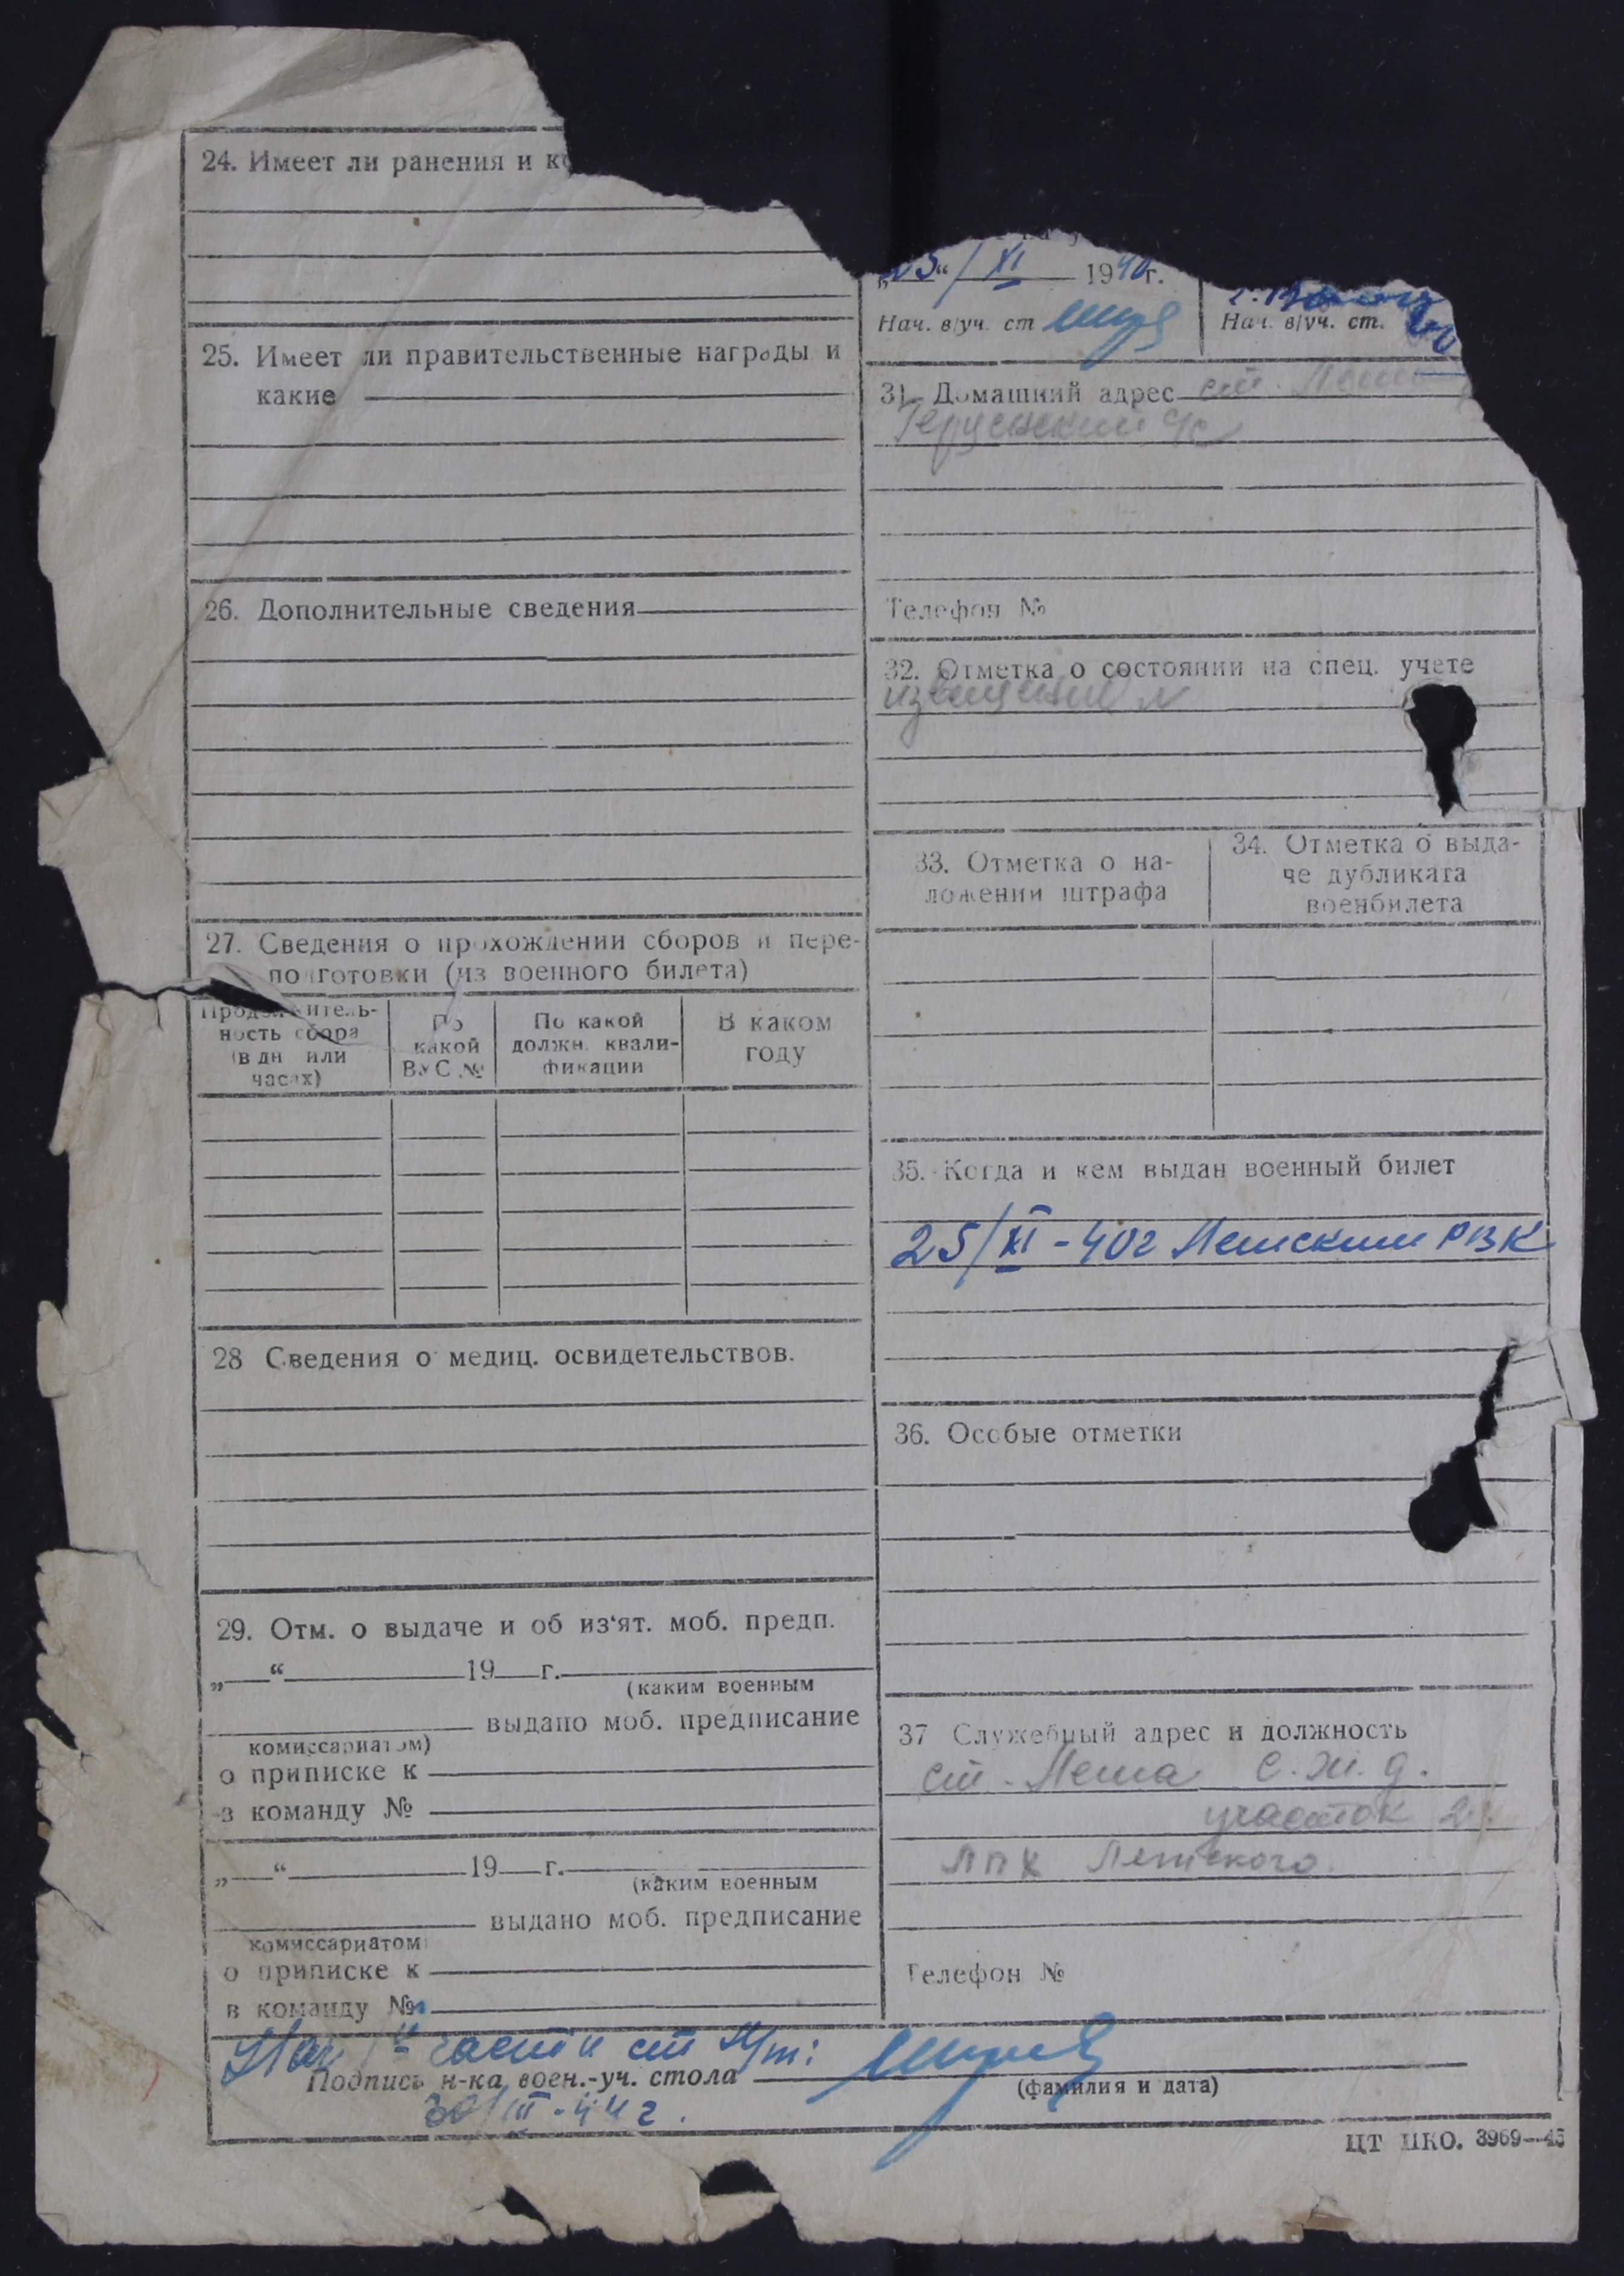 24. Имеет ли ранения и к
25. Имеет ли правительственные награды и
какие
26. Дополнительные сведения
27. Сведения о прохождении сборов и пере-
подготовки (из военного билета)
Продолжитель-
ность сбора
(в дн или
часах)
По
какой
ВУС №
По какой
должн. квали-
фикации
В каком
году
28 Сведения о медиц. освидетельствов.
29. Отм. о выдаче и об из‘ят. моб. предп.
„ “ 19 г.
(каким военным
выдано моб. предписание
комиссариатом)
о приписке к
в команду №
„ “ 19 г.
(каким военным
выдано моб. предписание
комиссариатом
о приписке к
в команду №
„25“/XI 1940г.
Нач. в/уч. ст
Нач. в/уч. ст.
31. Домашний адрес ст.
Телефон №
32. Отметка о состоянии на спец. учете
33. Отметка о на-
ложении штрафа
34. Отметка о выда-
че дубликата
военбилета
35. Когда и кем выдан военный билет
25/XI-40г Летским РВК
36. Особые отметки
37 Служебный адрес и должность
ст. Леша С.ж.д.
участок 2
ЛПХ Летского
Телефон №
Нач части
Подпись н-ка воен.-уч. стола
(фамилия и дата)
30/III-44г.
ЦТ НКО. 3969—45